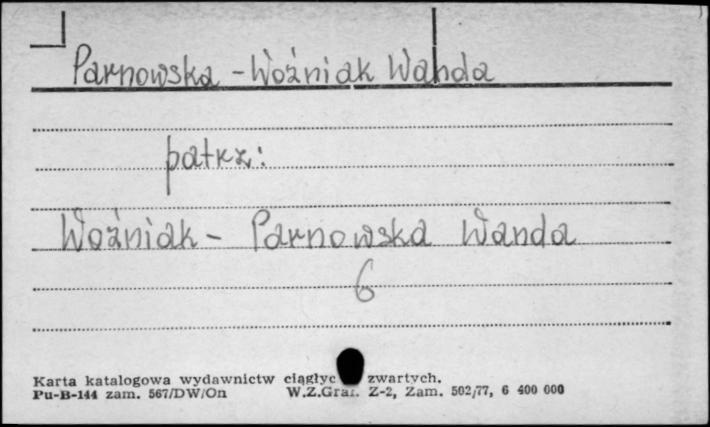 Parnowska - Woźniak Wanda
patrz:
Woźniak - Parnowska Wanda
6
Karta katalogowa wydawnictw ciągłyc zwartych.
Pu-B-144 zam. 567/DW/On W.Z.Graf. Z-2, Zam. 502/77, 6 400 000